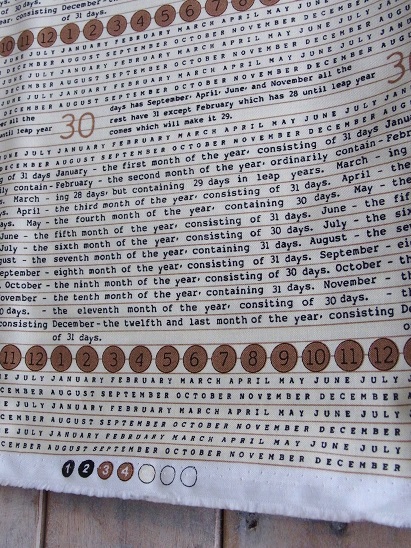 30 days.
consisting December-
of 31 days.
10 11 12 1 2 3 4 5 6 7 8
E JULY JANUARY FEBRUARY MARCH APRIL MAY JUNE JULY
DECEMBER AUGUST SEPTEMBER OCTOBER NOVEMBER DECEMBER
JULY JANUARY FEBRUARY MARCH APRIL MAY JUNE JULY
AUGUST SEPTEMBER OCTOBER NOVEMBER DECEMBER
all the
until leap year
30
days has September, April, June, and November all the
rest have 31 except February which has 28 until leap year
comes which will make it 29.
30
JUNE JULY JANUARY FEBRUARY MARCH APRIL MAY JUNE JULY JAN
DECEMBER AUGUST SEPTEMBER OCTOBER NOVEMBER DECEMBER AUG
of 31 days January - the first month of the year, consisting of 31 days Janu
ily contain-February - the second month of the year, ordinarily contain-Febru
March - ing 28 days, but containing 29 days in leap years. March - ing
s. April - the third month of the year, consisting of 31 days. April - the
May - the fourth month of the year, containing 30 days. May - the
June - the fifth month of the year, consisting of 31 days. June - the fif
July - the sixth month of the year, consisting of 30 days. July - the six
gust - the seventh month of the year, containing 31 days. August - the se
eptember - eighth month of the year, consisting of 31 days. September - ei
October - the ninth month of the year, consisting of 30 days. October - th
ovember - the tenth month of the year, containing 31 days. November - th
0 days. - the eleventh month of the year, consiting of 30 days. - t
consisting December - the twelfth and last month of the year, consisting De
of 31 days.
11 12 1 2 3 4 5 6 7 8 9 10 11 12
E JULY JANUARY FEBRUARY MARCH APRIL MAY JUNE JULY
CEMBER AUGUST SEPTEMBER OCTOBER NOVEMBER DECEMBER A
E JULY JANUARY FEBRUARY MARCH APRIL MAY JUNE JULY
CEMBER AUGUST SEPTEMBER OCTOBER NOVEMBER DECEMBER
E JULY JANUARY FEBRUARY MARCH APRIL MAY JUNE JULY
CEMBER AUGUST SEPTEMBER OCTOBER NOVEMBER DECEMBER
1 2 3 4